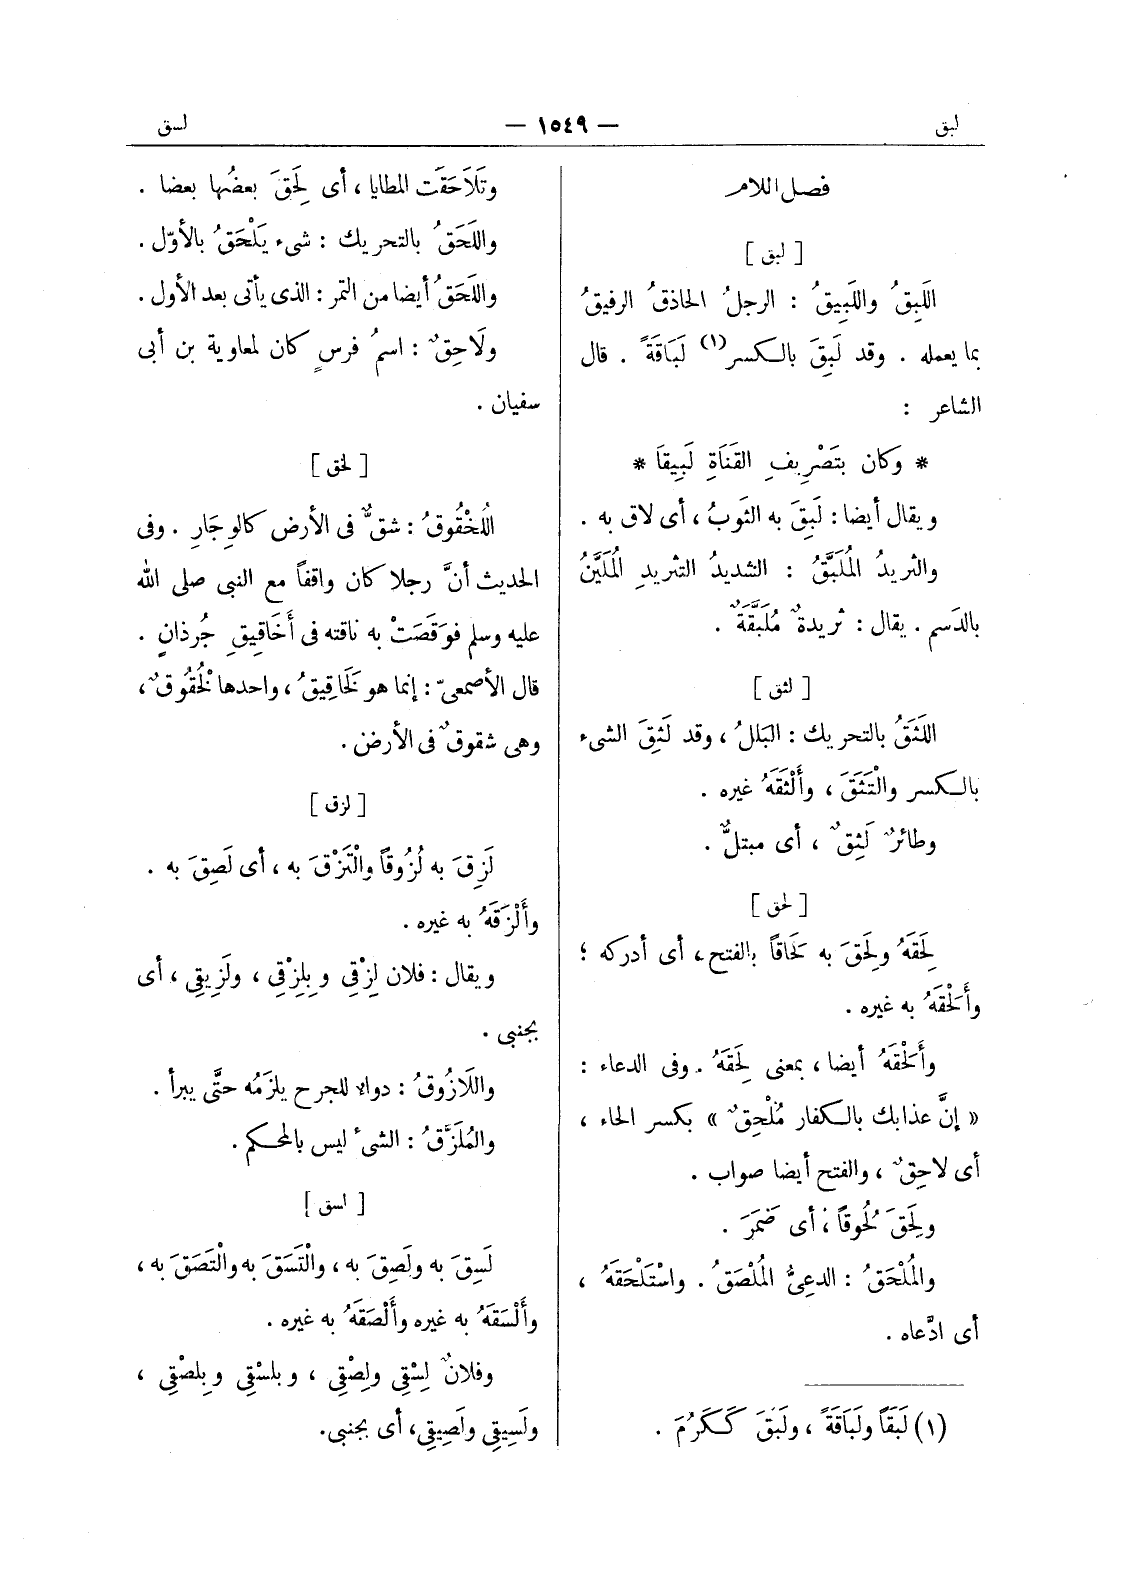 لبق
— ١٥٤٩ —
لسق
فصل اللام
[ لبق ]
اللَبِقُ واللَبِيقُ : الرجلُ الحاذقُ الرفيقُ
بما يعمله . وقد لَبِقَ بالكسر(١) لَبَاقَةً . قال
الشاعر :
* وَكان بتَصْرِيفِ القَنَاةِ لَبِيقاَ *
ويقال أيضا : لَبِقَ به الثَوبُ ، أى لاق به .
والثريدُ المُلَبَّقُ : الشديدُ التثريدِ المُلَيَّنُ
بالدَسم . يقال : ثريدةٌ مُلَبَّقَةٌ .
[ لثق ]
اللَثَقُ بالتحريك : البَللُ ، وقد لَثِقَ الشىء
بالكسر والْتَثَقَ ، وأَلْثَقَهُ غيره .
وطائرٌ لَثِقٌ ، أى مبتلٌّ .
[ لحق ]
لَحِقَهُ ولَحِقَ به لَحَاقاً بالفتح، أى أدركه ؛
وأَلْحَقهُ به غيره .
وأَلْحَقَهُ أيضا ، بمعنى لَحِقَهُ . وفى الدعاء :
« إنَّ عذابك بالكفار مُلْحِقٌ » بكسر الحاء ،
أى لاحِقٌ ، والفتح أيضا صواب .
ولَحِقَ لُحُوقاً ، أى ضَمَرَ .
والمُلْحَقُ : الدعِىُّ المُلْصَقُ . واسْتَلْحَقَهُ ،
أى ادَّعاه .
(١) لَبَقاً ولَبَاقَةً ، ولَبُقَ كَكَرُمَ .
وتَلَاحَقَت المطايا ، أى لَحِقَ بعضُها بعضا .
واللَحَقُ بالتحريك : شىء يَلْحَقُ بالأوّل .
واللَحَقُ أيضا من التمر : الذى يأتى بعد الأول .
ولَاحِقٌ : اسمُ فرسٍ كان لمعاوية بن أبى
سفيان .
[ لخق ]
اللُخْقُوقُ : شقٌّ فى الأرض كالوِجَارِ . وفى
الحديث أنَّ رجلا كان واقفاً مع النبى صلى الله
عليه وسلم فوَقَصَتْ به ناقته فى أَخَاقِيقِ جُرذانٍ .
قال الأصمعىّ : إنما هو لَخَاقِيقُ ، واحدها لُخْقُوقٌ ،
وهى شقوقٌ فى الأرض .
[ لزق ]
لَزِقَ به لُزُوقاً والْتَزَقَ به ، أى لَصِقَ به .
وأَلْزَقَهُ به غيره .
ويقال : فلان لِزْقِى وبِلِزْقِى ، ولَزِيقِى ، أى
بجنبى .
واللَازُوقُ : دواء للجرح يلزَمُه حتَّى يبرأ .
والمُلَزَّقُ : الشىءُ ليس بالمحكم .
[ لسق ]
لَسِقَ به ولَصِقَ به ، والْتَسَقَ به والْتَصَقَ به ،
وأَلْسَقَهُ به غيره وأَلْصَقَهُ به غيره .
وفلانٌ لِسْقِى ولِصْقِى ، وبلسْقِى وبِلصْقِى ،
ولَسِيقِى ولَصِيقِى، أى بجنبى.